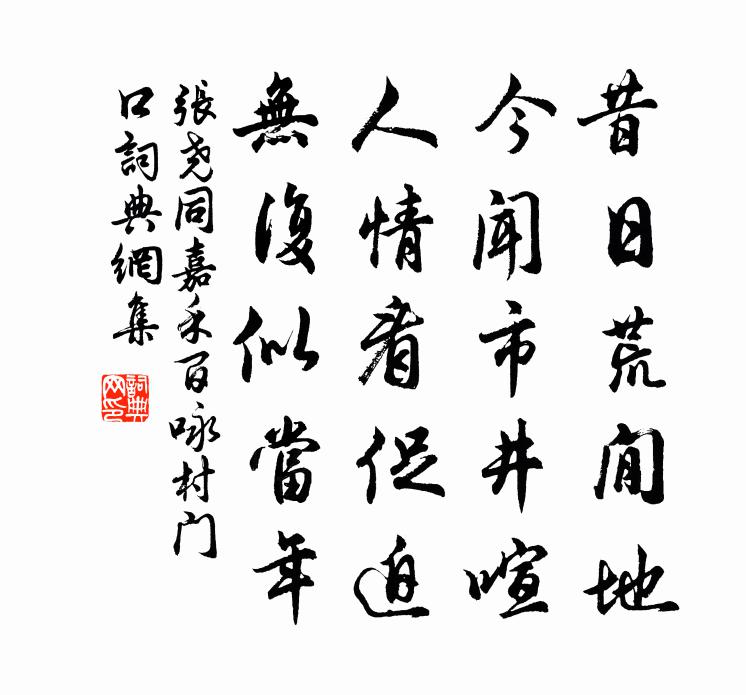 昔日荒閒地
今聞市井喧
人情看促迫
無復似當年
張堯同嘉禾百咏村门
口詞典網集
詞典
网印